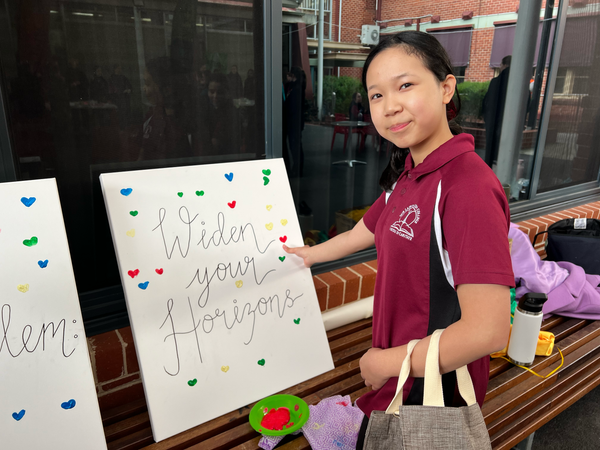 lem:
Widen
your
Horizons